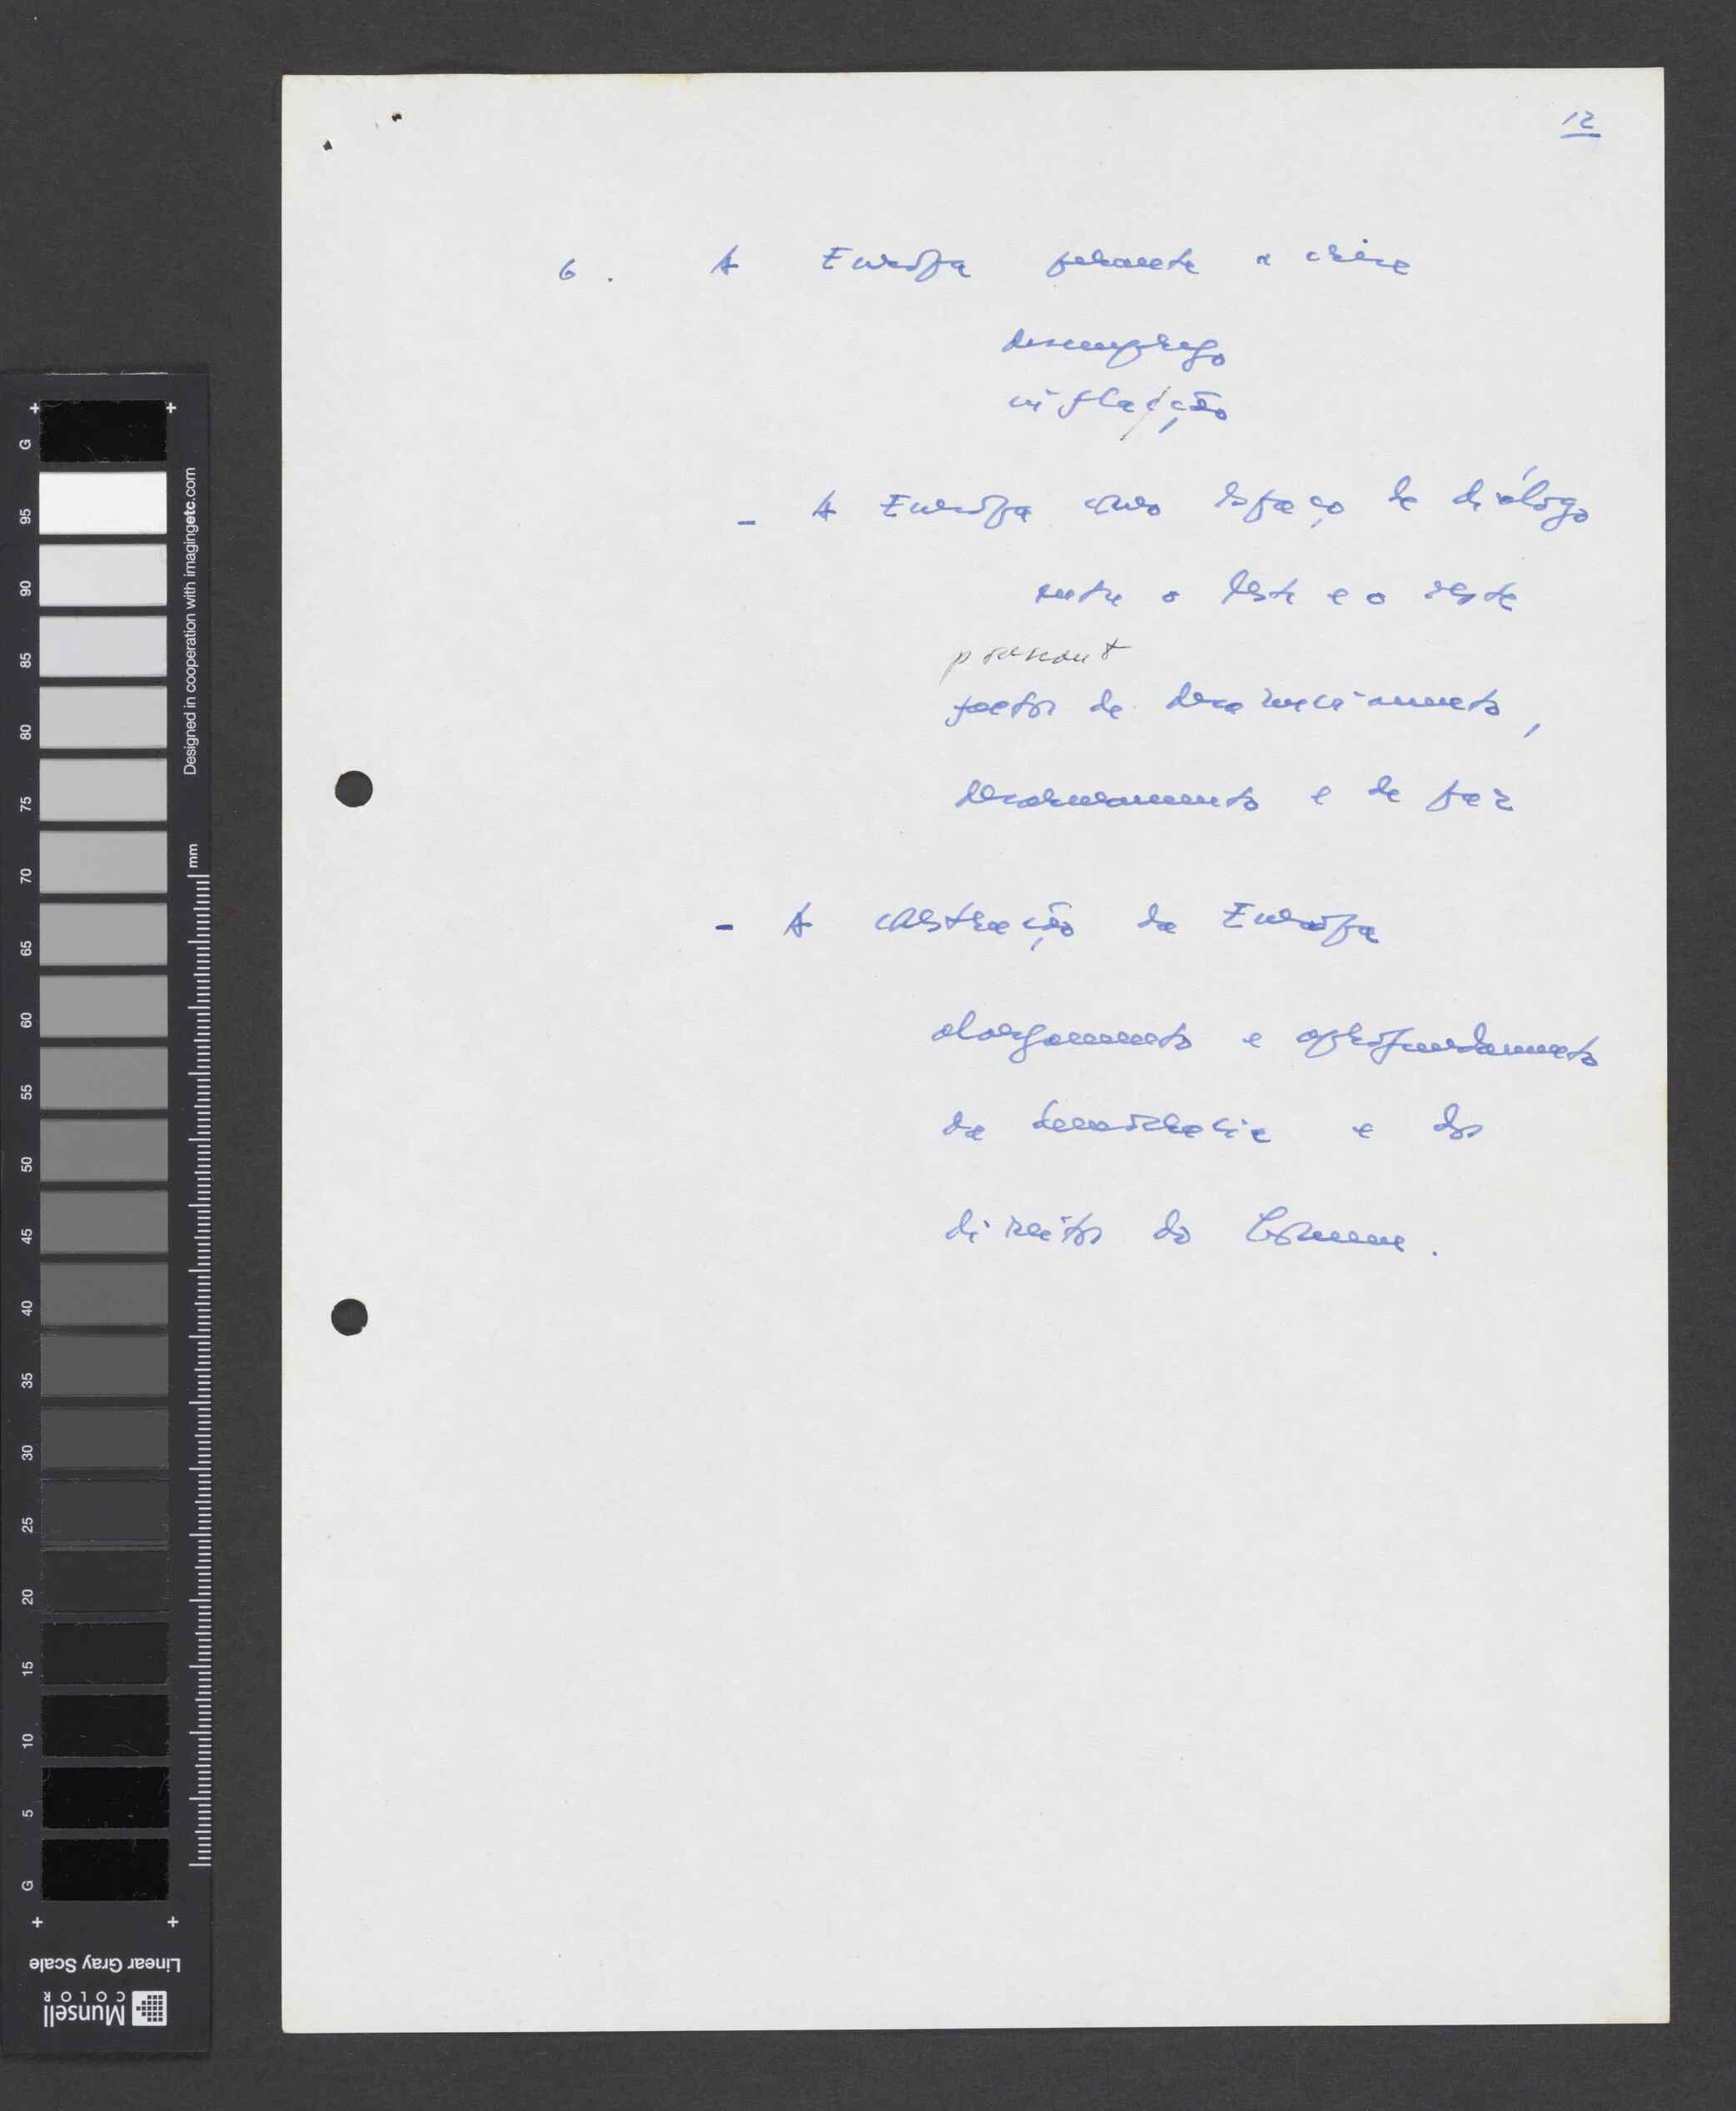 12
6. A Europa perante a crise
desemprego
inflação
- A Europa como espaço de diálogo
entre o leste e o oeste
factor de desanuviamento,
desarmamento e de paz
- A construção da Europa
alargamento e aprofundamento
da democracia e dos
direitos do Homem.
G
95
90
85
80
75
70
65
60
55
50
45
40
35
30
25
20
15
10
5
G
Designed in cooperation with imagingetc.com
mm
Linear Gray Scale
Munsell
COLOR